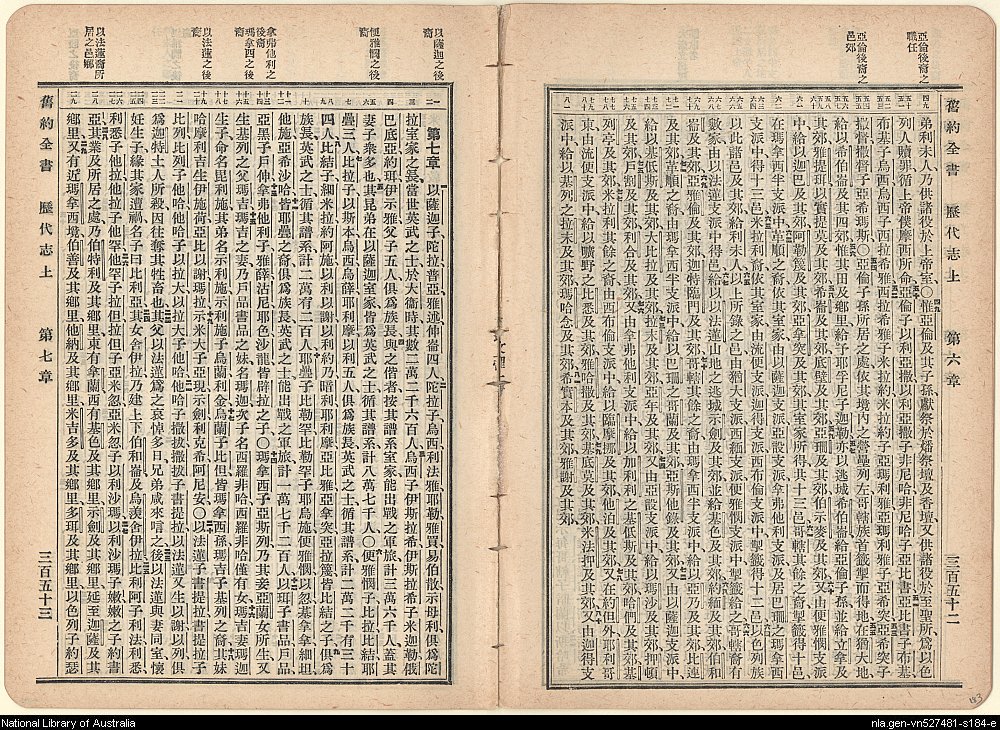 舊約全書 歷代志上 第六章 三百五十二
亞倫後裔之
職任
亞倫後裔之
邑郊
弟利未人乃供諸役於上帝室○惟亞倫及其子孫獻祭於燔祭壇及香壇又供諸役於至聖所爲以色
列人贖罪循上帝僕摩西所命亞倫子以利亞撒以利亞撒子非尼哈非尼哈子亞比書亞比書子布基
布基子烏西烏西子西拉希雅西拉希雅子米拉約米拉約子亞瑪利雅亞瑪利雅子亞希突亞希突子
撒督撒督子亞希瑪斯○亞倫子孫所居之處依其境內之營壘列左哥轄族首籤掣而得地在猶大地
給以希伯崙及其四郊惟其田及鄉里給于耶孚尼子迦勒亦以逃城希伯崙給亞倫子孫並給立拿及
其郊雅提珥以實提莫及其郊希崙及其郊底璧及其郊亞珊及其郊伯示麥及其郊又由便雅憫支派
中給以迦巴及其郊阿勒篾及其郊亞拿突及其郊其室家所得共十三邑哥轄其餘之裔掣籤得十邑
在瑪拿西半支派中革順之裔依其室家由以薩迦支派亞設支派拿弗他利支派居巴珊之瑪拿西
支派中得十三邑米拉利裔依其室家由流便支派迦得支派西布倫支派中掣籤得十二邑以色列族
以此諸邑及其郊給利未人以上所錄之邑由猶大支派西緬支派便雅憫支派中掣籤給之哥轄裔有
數家由以法蓮支派中得邑給以以法蓮山地之逃城示劍及其郊並給基色及其郊約緬及其郊伯和
崙及其郊亞雅倫及其郊迦特臨門及其郊哥轄其餘之裔由瑪拿西半支派中給以亞乃及其郊比連
及其郊革順之裔由瑪拿西半支派中給以巴珊之哥蘭及其郊亞斯他錄及其郊又由以薩迦支派中
給以基低斯及其郊大比拉及其郊拉末及其郊亞年及其郊又由亞設支派中給以瑪沙及其郊押頓
及其郊戶割及其郊利合及其郊又由拿弗他利支派中給以加利利之基低斯及其郊哈們及其郊基
列亭及其郊米拉利其餘之裔由西布倫支派中給以臨摩挪及其郊他泊及其郊又在約但外耶利哥
東由流便支派中給以曠野之比悉及其郊雅哈撒及其郊基底莫及其郊米法押及其郊又由迦得支
派中給以基列之拉末及其郊瑪哈念及其郊希實本及其郊雅謝及其郊
以薩迦之後
裔
便雅憫之後
裔
拿弗他利之
後裔
瑪拿西之後
裔
以法蓮之後
裔
以法蓮裔所
居之邑鄉
第七章 以薩迦子陀拉普亞雅述伸崙四人陀拉子烏西利法雅耶勒雅買易伯散示母利俱爲陀
拉室家之長當世英武之士於大衞時其數二萬二千六百人烏西子伊斯拉希伊斯拉希子米迦勒俄
巴底亞約珥伊示雅父子五人俱爲族長與之偕者按其譜系室家能出戰之軍旅計三萬六千人蓋其
妻子衆多也其昆弟在以薩迦室家皆爲英武之士循其譜系計八萬七千人○便雅憫子比拉比結耶
疊三人比拉子以斯本烏西烏薛耶利摩以利五人俱爲族長英武之士循其譜系計二萬二千有三十
四人比結子細米拉約阿施以利以謝以利約乃暗利耶利摩亞比雅亞拿突亞拉篾皆比結之子俱爲
族長英武之士循其譜系計二萬有二百人耶疊子比勒罕比勒罕子耶烏施便雅憫以忽基拿拿細坦
他施亞希沙哈皆耶疊之裔俱爲族長英武之士能出戰之軍旅計一萬七千二百人以珥子書品戶品
亞黑子戶伸拿弗他利子雅薛沽尼耶色沙龍皆辟拉之子○瑪拿西子亞斯列乃其妾亞蘭女所生又
生基列之父瑪吉瑪吉之妻乃戶品書品之妹名瑪迦次子名西羅非哈西羅非哈僅有女瑪吉妻瑪迦
生子命名毘利施其弟名示利施示利施子烏蘭利金烏蘭子比但皆瑪拿西孫瑪吉子基列之裔其妹
哈摩利吉生伊施荷亞比以謝瑪拉示米大子亞現示劍利克希阿尼安○以法蓮子書提拉書提拉子
比列比列子他哈他哈子以拉大以拉大子他哈他哈子撒拔撒拔子書提拉以法蓮又生以謝以列俱
爲迦特土人所殺因往奪其牲畜也其父以法蓮爲之哀悼多日兄弟咸來唁之後以法蓮與妻同室懷
妊生子緣其家遭禍名子曰比利亞其女舍伊拉乃建上下伯和崙及烏羨舍伊拉比利阿子利法利悉
利悉子他拉他拉子他罕他罕子拉但拉但子亞米忽亞米忽子以利沙瑪以利沙瑪子嫩嫩之子約書
亞其業及所居之處乃伯特利及其鄉里東有拿蘭西有基色及其鄉里示劍及其鄉里延至迦薩及其
鄉里又有近瑪拿西境伯善及其鄉里他納及其鄉里米吉多及其鄉里多珥及其鄉里以色列子約瑟
舊約全書 歷代志上 第七章 三百五十三
183
National Library of Australia
nla.gen-vn527481-s184-e